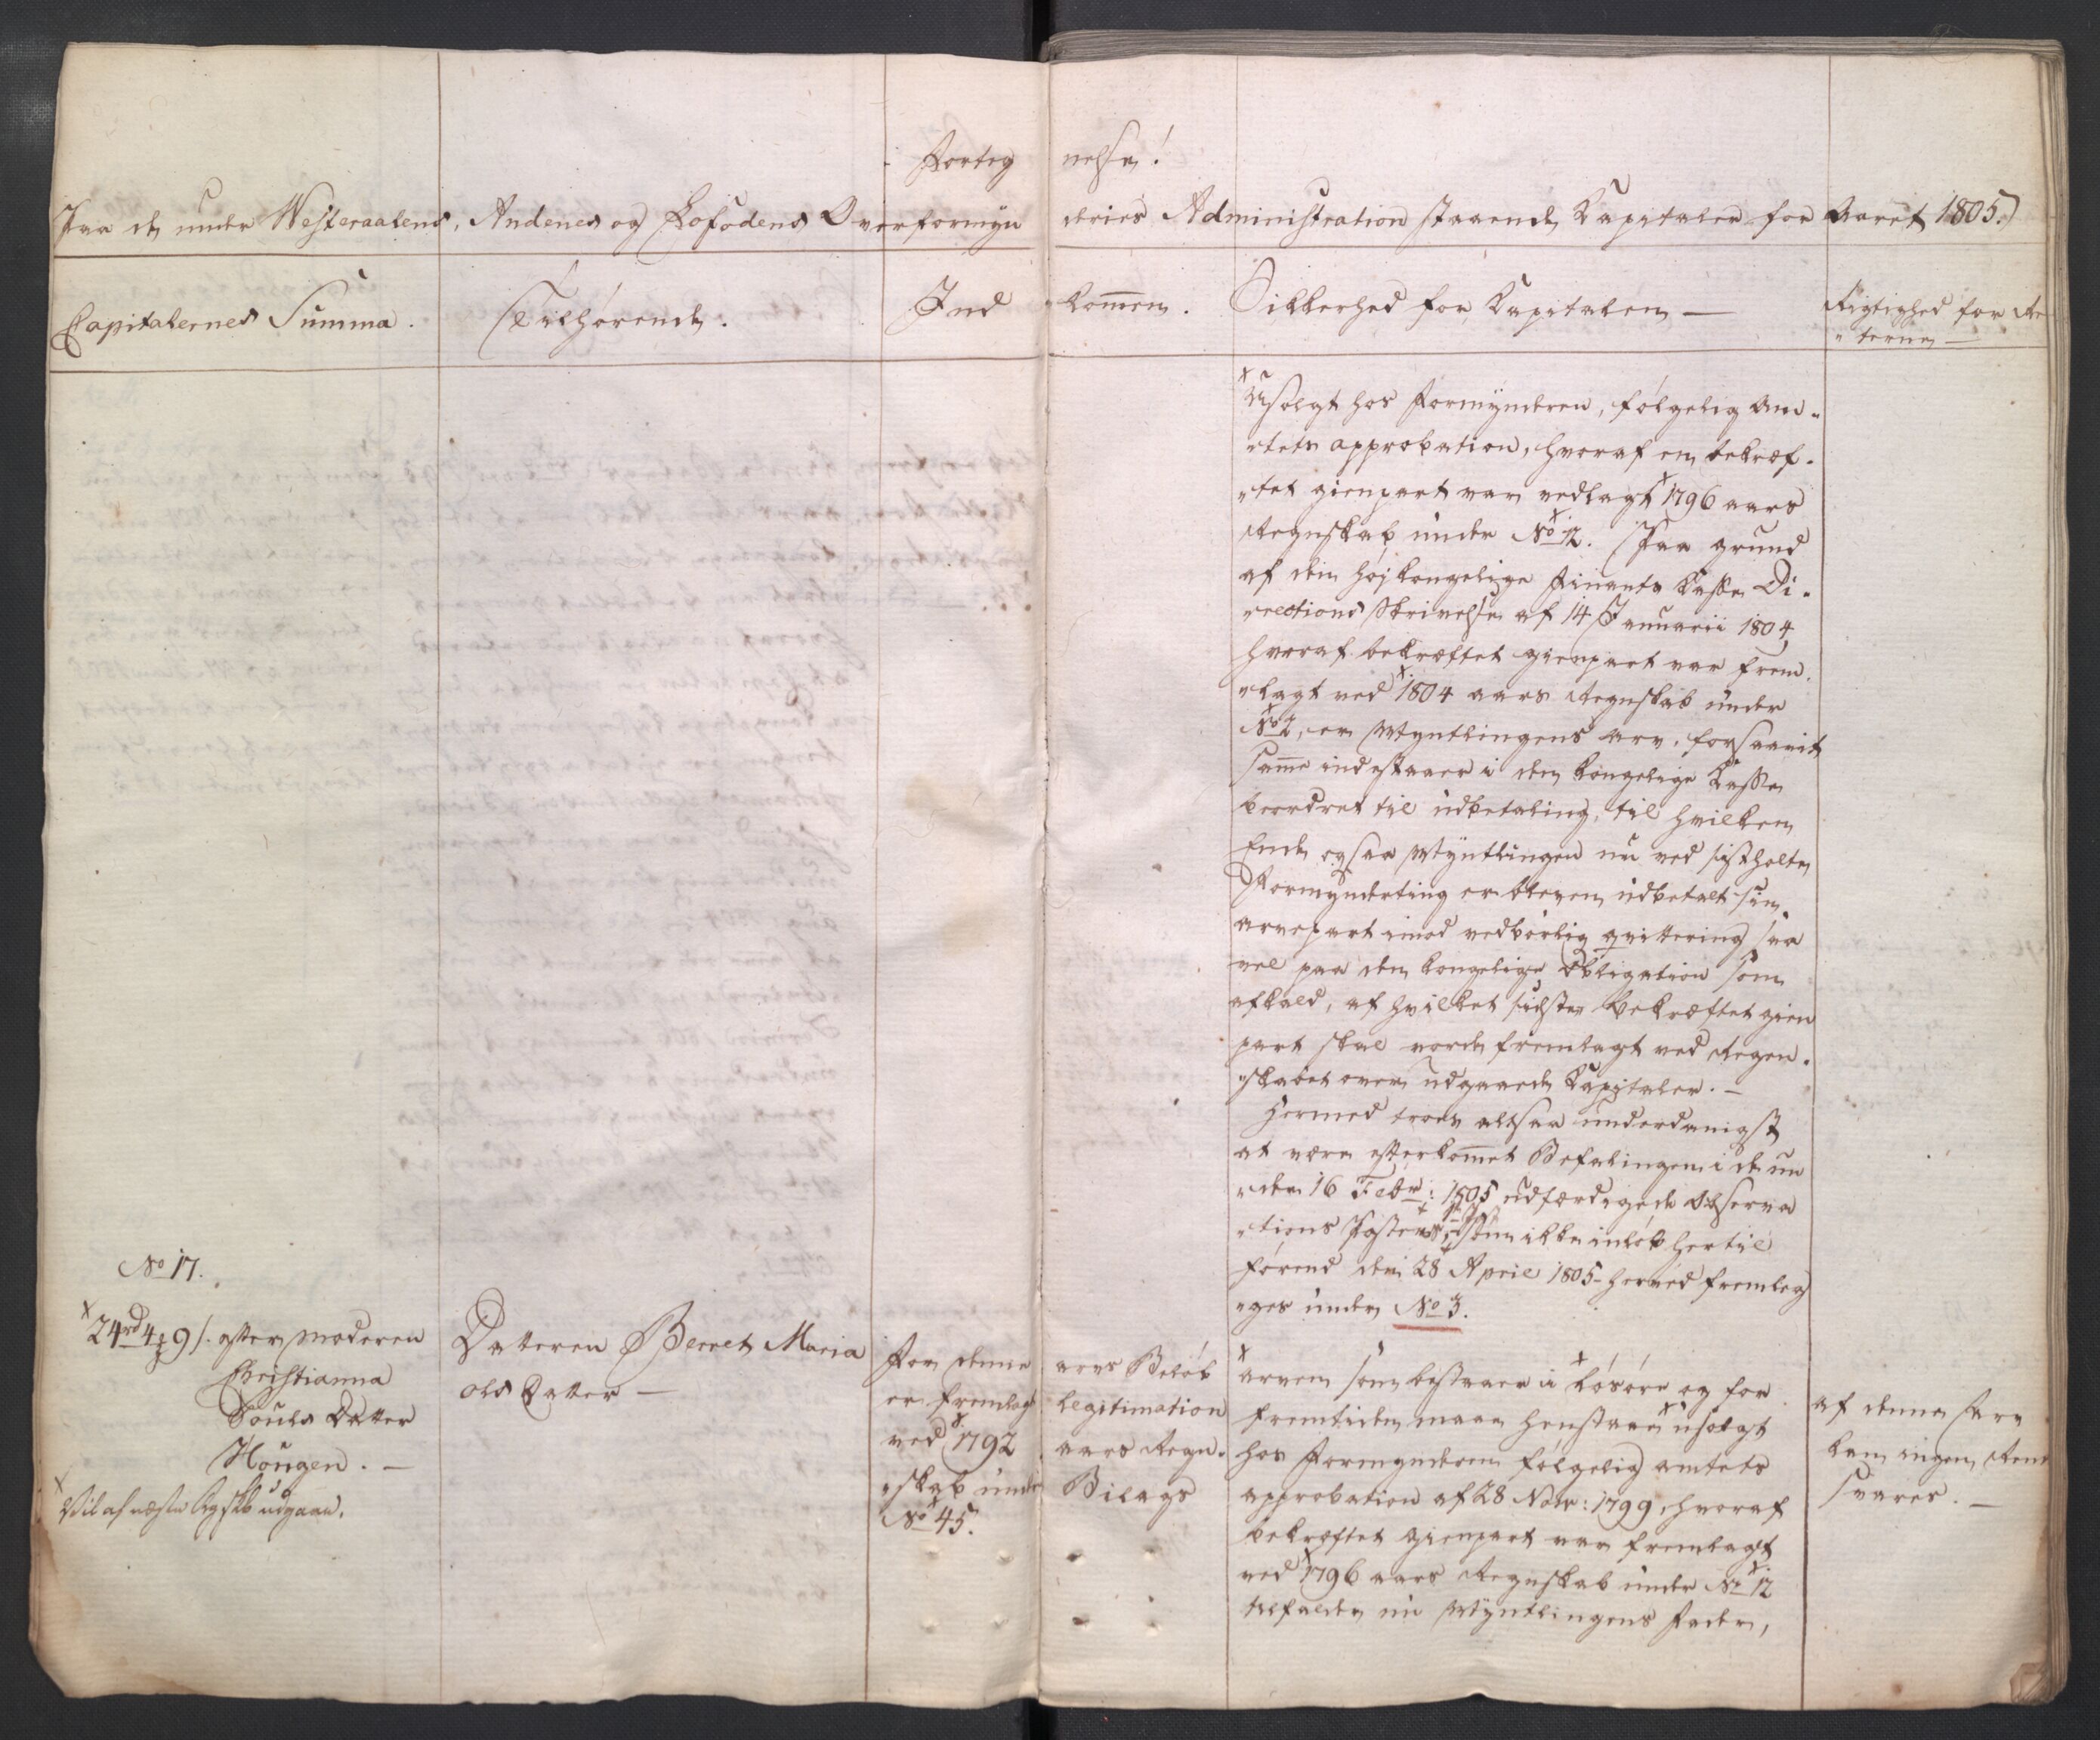 Forteg nelse!
Paa de under Westeraalens, Andenes og Lofodens Overformyn deries Administration staaende Kapitaler for Aaret 1805.
Capitalernes Summa.
Tilhørende.
Ind kommen.
Sikkerhed for Kapitalen —
Rigtighed for Re„
„terne —
Usolgt hos Formynderen, følgelig Am„
„tets approbation, hvoraf en bekræf„
„tet gienpart var vedlagt 1796 aars
Regnskab under No 12. Paa grund
af den høj kongelige Finants Kasse Di„
„rections Skrivelse af 14 Januarii 1804,
hvoraf bekræftet gienpart var frem„
„lagt ved 1804 aars Regnskab under
No 2, er Myntlingens arv, forsaavit
samme indestaaer i den kongelige Kasse
beordret til udbetaling, til hvilken
Ende ogsaa Myntlingen nu ved sistholte
Formynderting er bleven udbetalt sin
arvepart imod vedbørlig qvittering saa
vel paa den kongelige Obligation som
afkald, af hvilket sidste bekræftet gien
part skal vorde fremlagt ved Regen„
„skabet over udgaaede Kapitaler. —
Hermed troes altsaa underdanigst
at være efterkommet Befalingen i de un
„der 16 Febr: 1805 udfærdigede Observa
„tions Poster som ikke indløb hertil
førend den 28 April 1805 herved fremleg
„ges under No 3.
No 17.
24rd 4 ƶ 9 s. efter moderen
Christianna
Pouls Datter
Hougen. —
Vil af næste Rgskb udgaae.
Datteren Berret Maria
Ols Datter —
For denne arvs Beløb
er fremlagt legitimation
ved 1792 aars Regn„
„skab under Bilags
No 45.
Arven som bestaaer i Løsøre og for
fremtiden maae henstaae usolgt
hos Formynderen følgelig amtets
approbation af 28 Novr: 1799, hvoraf
bekræftet gienpart var fremlagt
ved 1796 aars Regnskab under No 12
tilfalder nu Myntlingens Fader,
af denne Arv
kan ingen Rente
svares. —